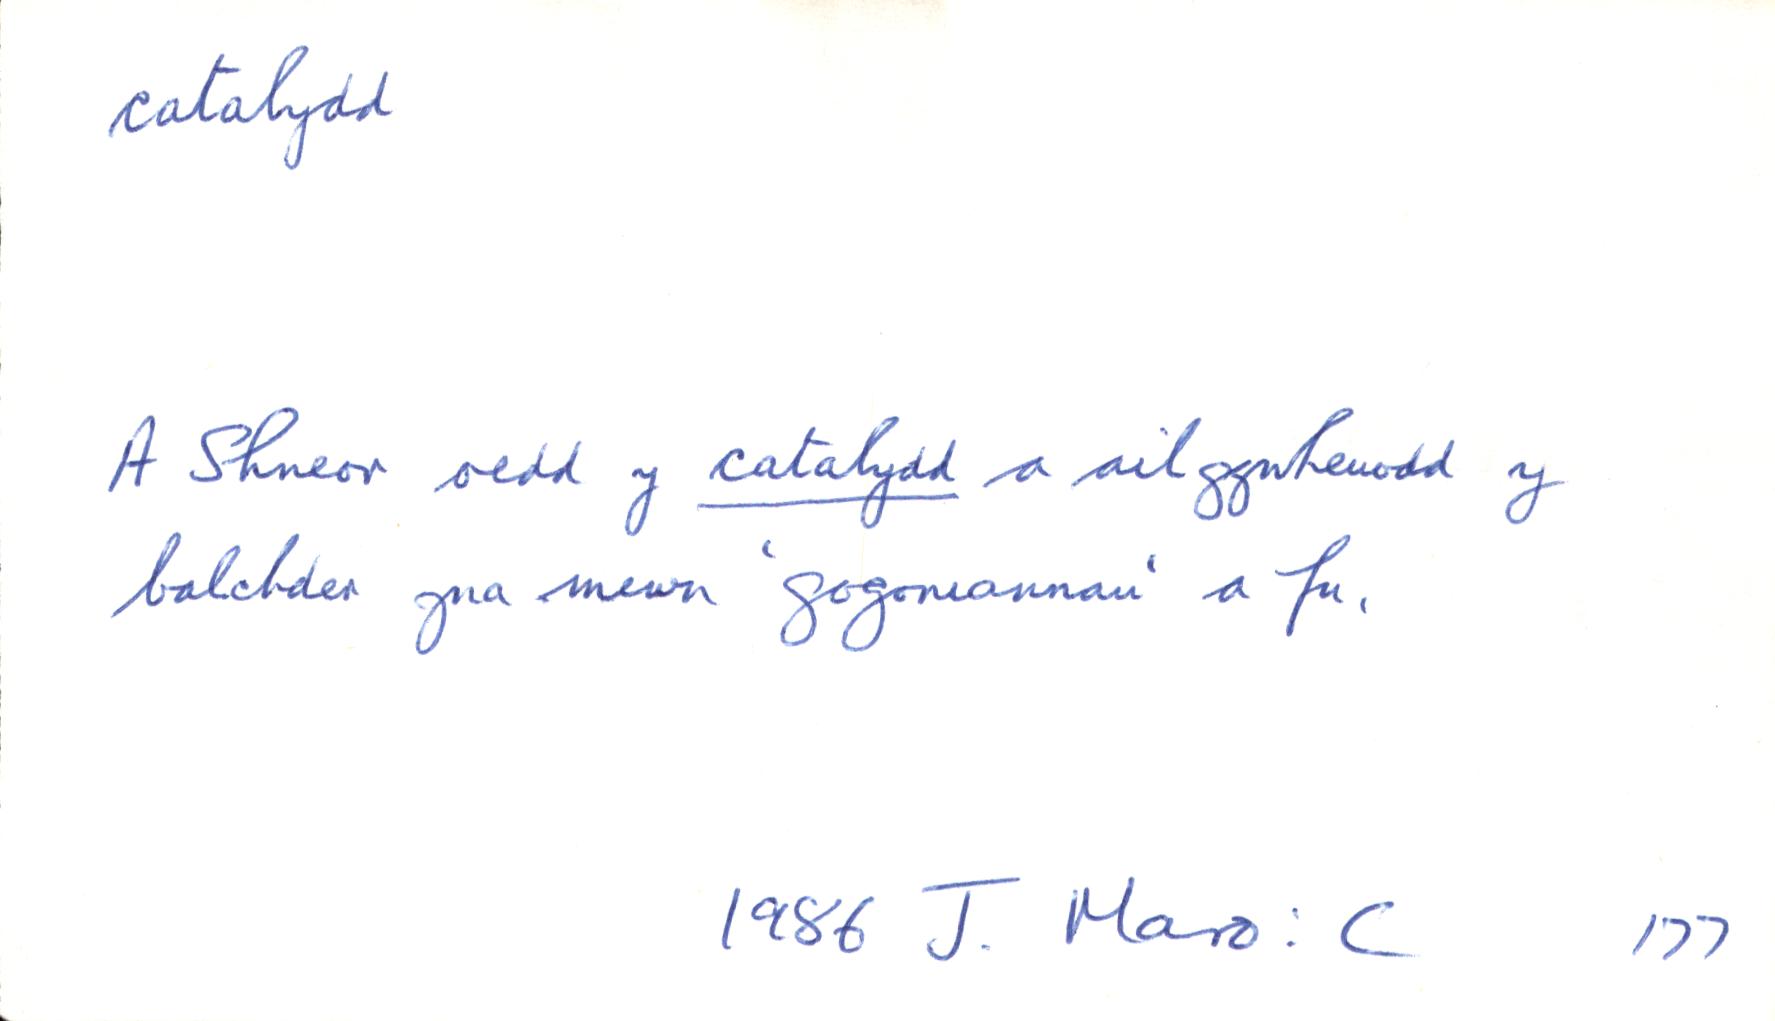 catalydd
A Shneor oedd y catalydd a ailgynheuodd y
balchder yna mewn 'gogoniannau' a fu.
1986 J. Maro: C 177